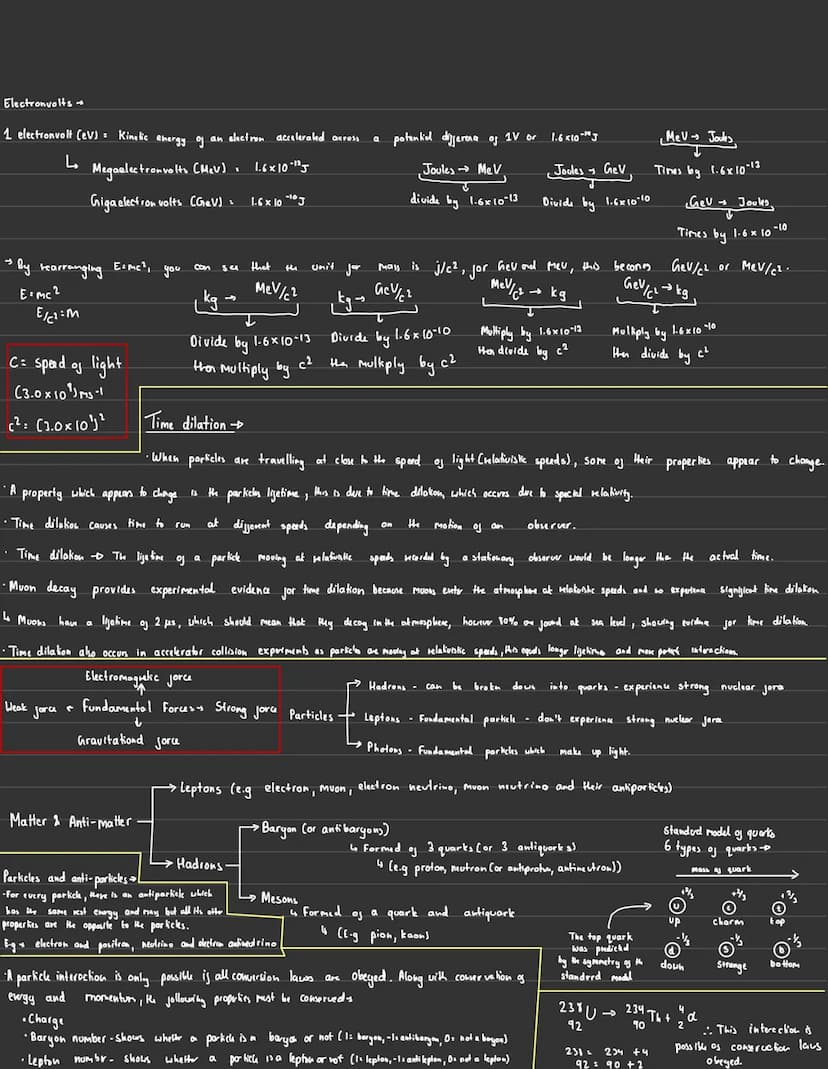 Electronvolts →
1 electronvolt (eV) = Kinetic energy of an electron accelerated across a potential difference of 1V or 1.6x10⁻¹⁹J
MeV → Joules
↳ Megaelectronvolts (MeV) = 1.6x10⁻¹³J
Joules → MeV
Joules → GeV
Times by 1.6x10⁻¹³
Gigaelectronvolts (GeV) = 1.6x10⁻¹⁰J
divide by 1.6x10⁻¹³
Divide by 1.6x10⁻¹⁰
GeV → Joules
Times by 1.6x10⁻¹⁰
→ By rearranging E=mc², you can see that the unit for mass is j/c², for GeV and MeV, this becomes GeV/c² or MeV/c².
E=mc²
E/c²=M
kg → MeV/c²
kg → GeV/c²
MeV/c² → kg
GeV/c² → kg
Divide by 1.6x10⁻¹³
then multiply by c²
Divide by 1.6x10⁻¹⁰
then multiply by c²
Multiply by 1.6x10⁻¹³
then divide by c²
Multiply by 1.6x10⁻¹⁰
then divide by c²
C= speed of light
(3.0x10⁸)ms⁻¹
c²= (3.0x10⁸)²
Time dilation →
· When particles are travelling at close to the speed of light (relativistic speeds), some of their properties appear to change.
· A property which appears to change is the particles lifetime, this is due to time dilation, which occurs due to special relativity.
· Time dilation causes time to run at different speeds depending on the motion of an observer.
· Time dilation → The lifetime of a particle moving at relativistic speeds recorded by a stationary observer would be longer than the actual time.
· Muon decay provides experimental evidence for time dilation because muons enter the atmosphere at relativistic speeds and so experience significant time dilation
↳ Muons have a lifetime of 2 µs, which should mean that they decay in the atmosphere, however 80% are found at sea level, showing evidence for time dilation.
· Time dilation also occurs in accelerator collision experiments as particles are moving at relativistic speeds, this equals longer lifetimes and more interactions.
Electromagnetic force
Weak force ← Fundamental Forces → Strong force
Gravitational force
Particles
→ Hadrons - can be broken down into quarks - experience strong nuclear force
→ Leptons - Fundamental particle - don't experience strong nuclear force
→ Photons - Fundamental particles which make up light.
Matter & Anti-matter
→ Leptons (e.g electron, muon, electron neutrino, muon neutrino and their antiparticles)
→ Hadrons
→ Baryon (or antibaryons)
↳ Formed of 3 quarks (or 3 antiquarks)
↳ (e.g proton, neutron (or antiproton, antineutron))
→ Mesons
↳ Formed of a quark and antiquark
↳ (E.g pion, kaon)
Standard model of quarks
6 types of quarks →
mass of quark
+⅔ +⅔ +⅔
u c t
up charm top
-⅓ -⅓ -⅓
d s b
down strange bottom
The top quark
was predicted
by the symmetry of the
standard model
Particles and anti-particles →
· For every particle, there is an antiparticle which
has the same rest energy and mass but all its other
properties are the opposite to the particles.
E.g → electron and positron, neutrino and electron antineutrino
· A particle interaction is only possible if all conservation laws are obeyed. Along with conservation of
energy and momentum, the following properties must be conserved →
· Charge
· Baryon number - shows whether a particle is a baryon or not (1= baryon, -1= antibaryon, 0= not a baryon)
· Lepton number - shows whether a particle is a lepton or not (1= lepton, -1= antilepton, 0= not a lepton)
²³⁸₉₂U → ²³⁴₉₀Th + ⁴₂α
238 = 234 + 4
92 = 90 + 2
∴ This interaction is
possible as conservation laws
obeyed.